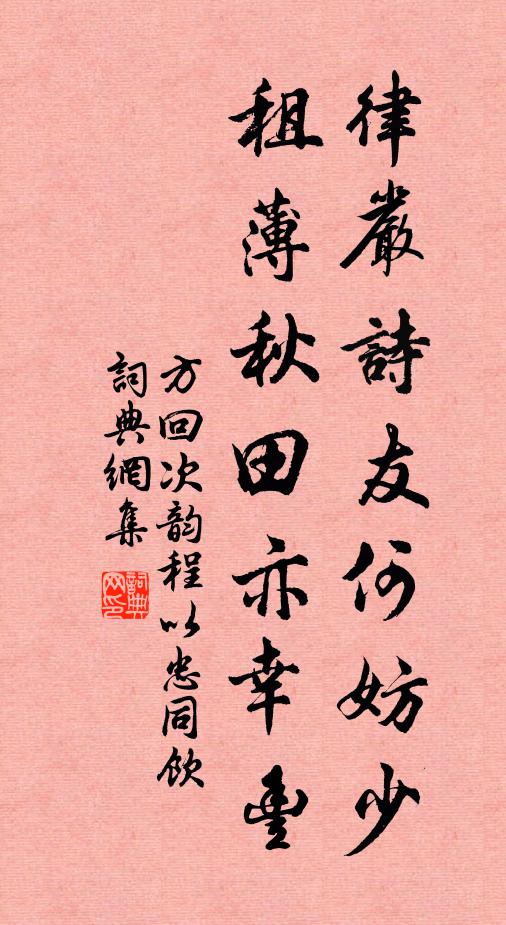 律嚴詩友何妨少
租薄秋田亦幸豐
方回次韵程以忠同飲
詞典網集
詞典網印